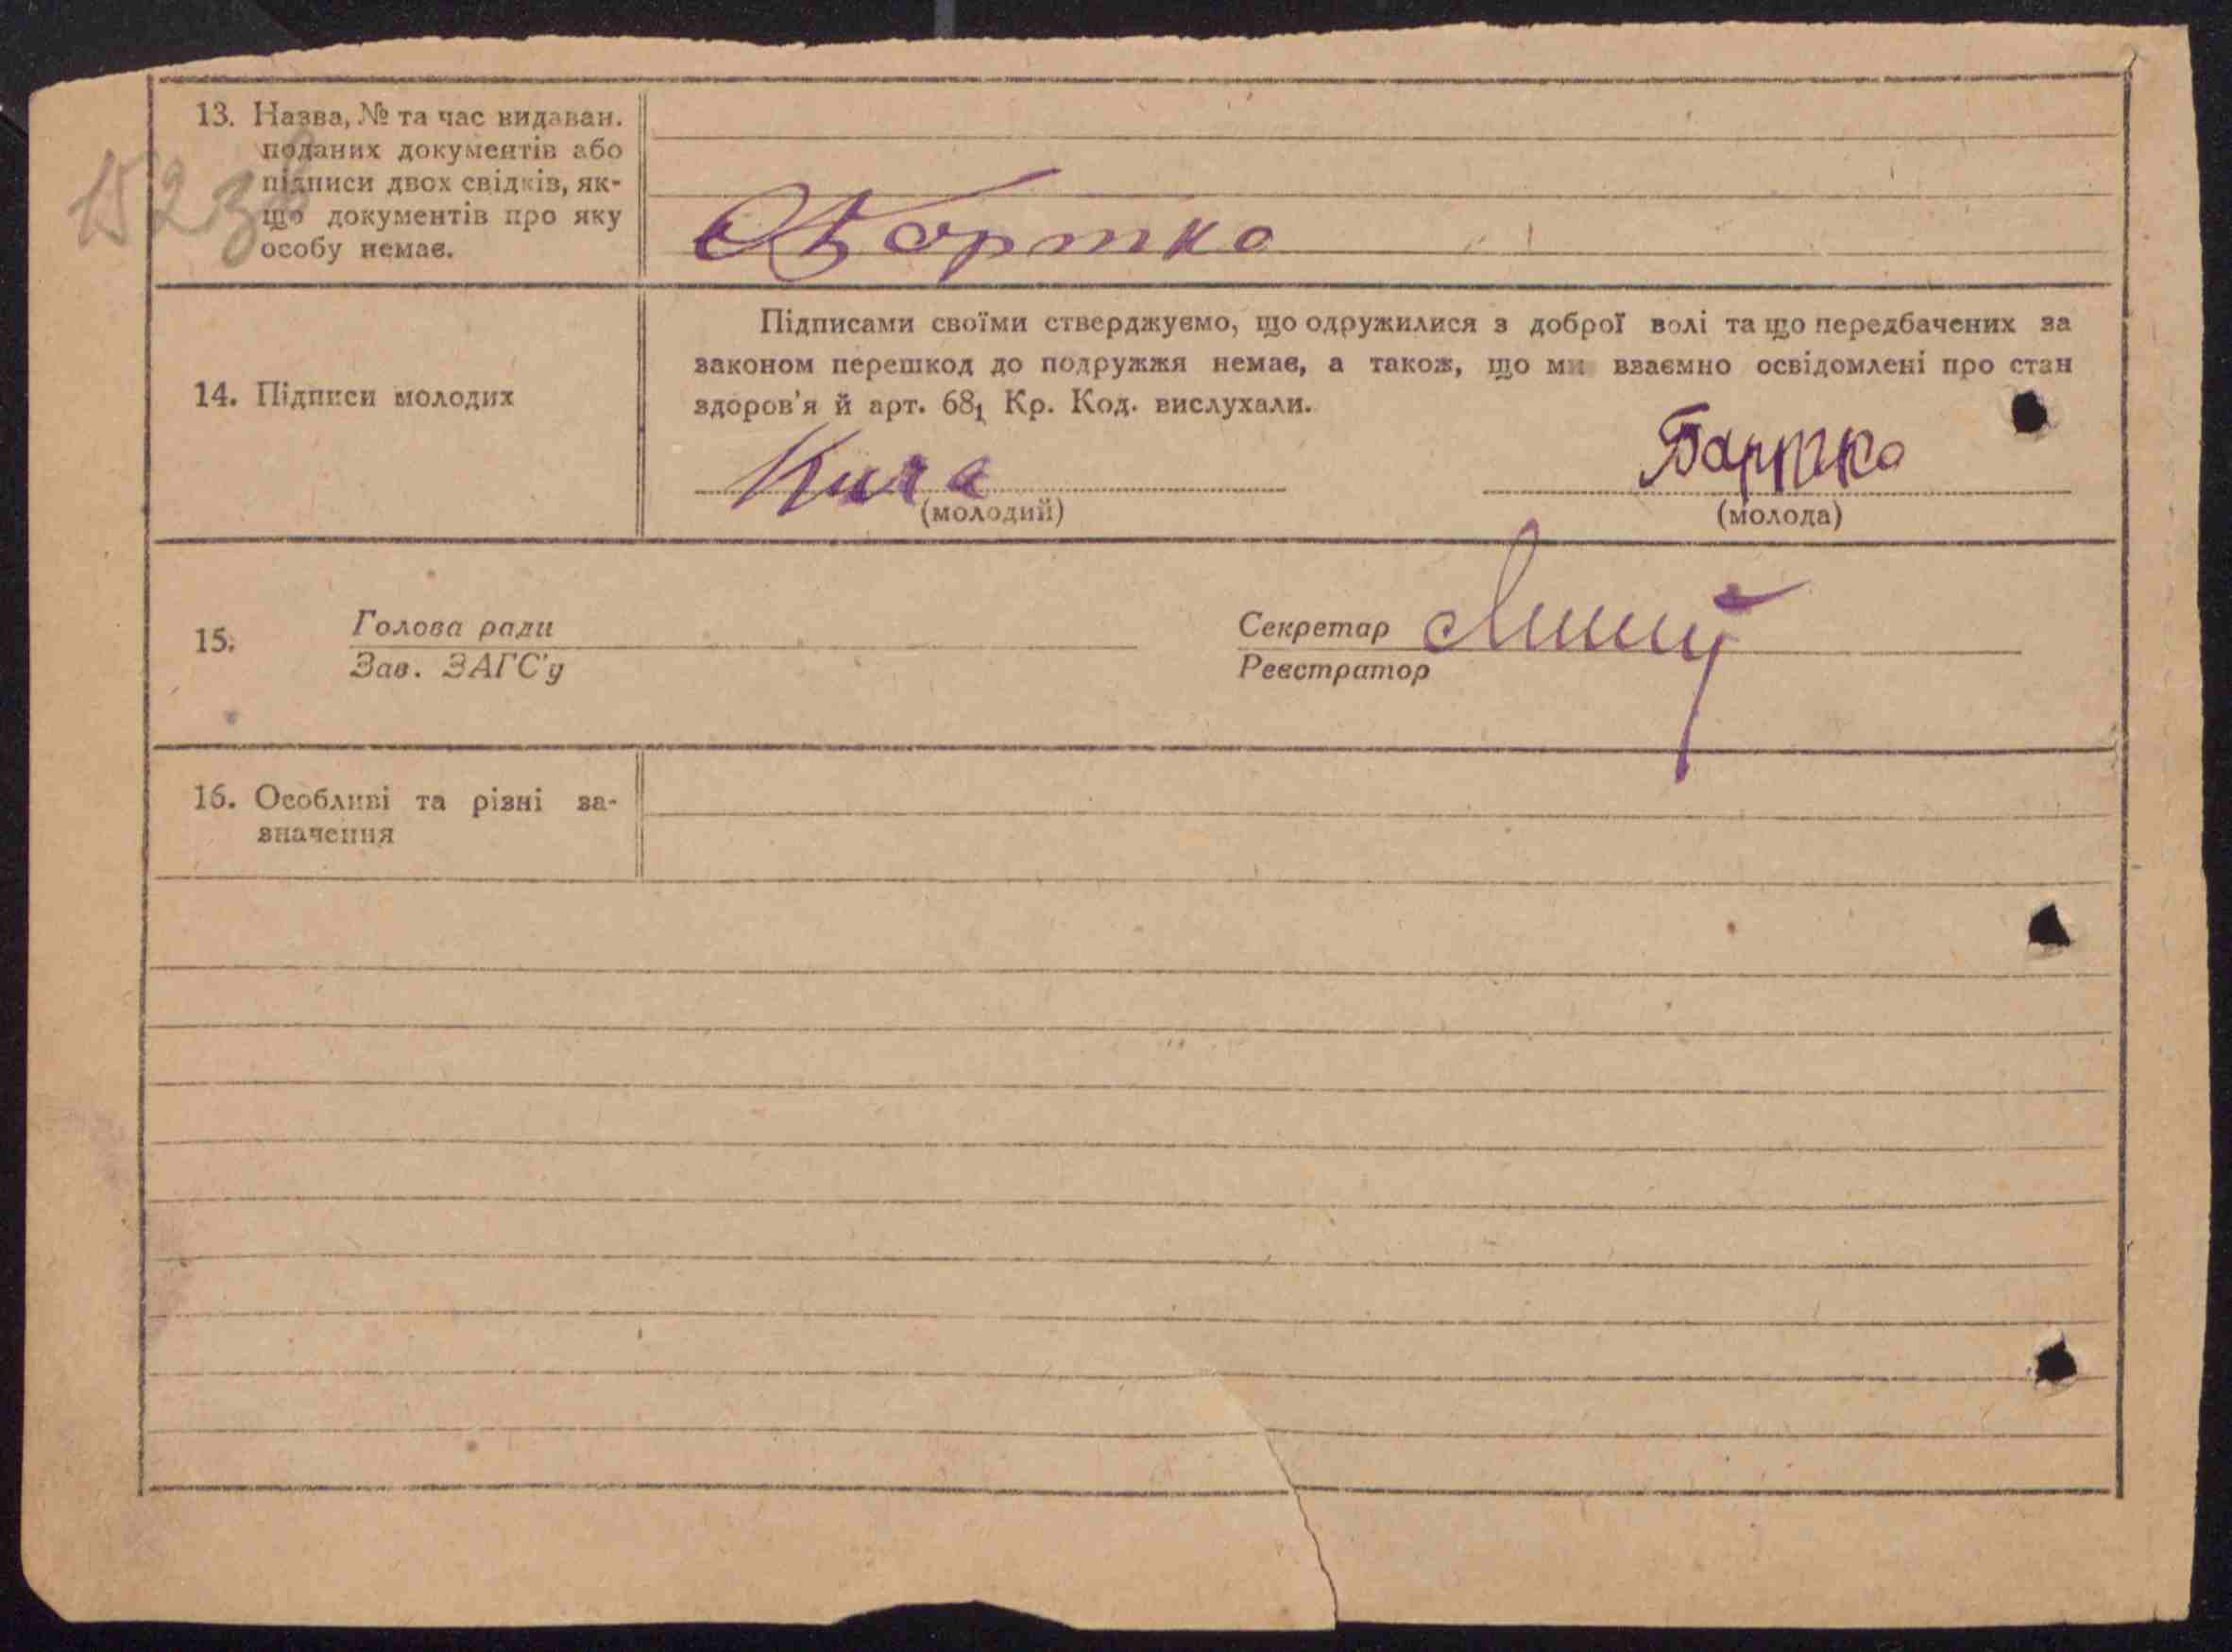 13. Назва, № та час видаван.
поданих документів або
підписи двох свідків, як-
що документів про яку
особу немає.
152 зв
Підписами своїми стверджуємо, що одружилися з доброї волі та що передбачених за
законом перешкод до подружжя немає, а також, що ми взаємно освідомлені про стан
здоров'я й арт. 68₁ Кр. Код. вислухали.
14. Підписи молодих
Бартко
(молодий)
(молода)
15.
Голова ради
Зав. ЗАГС'у
Секретар
Реєстратор
16. Особливі та різні за-
значення